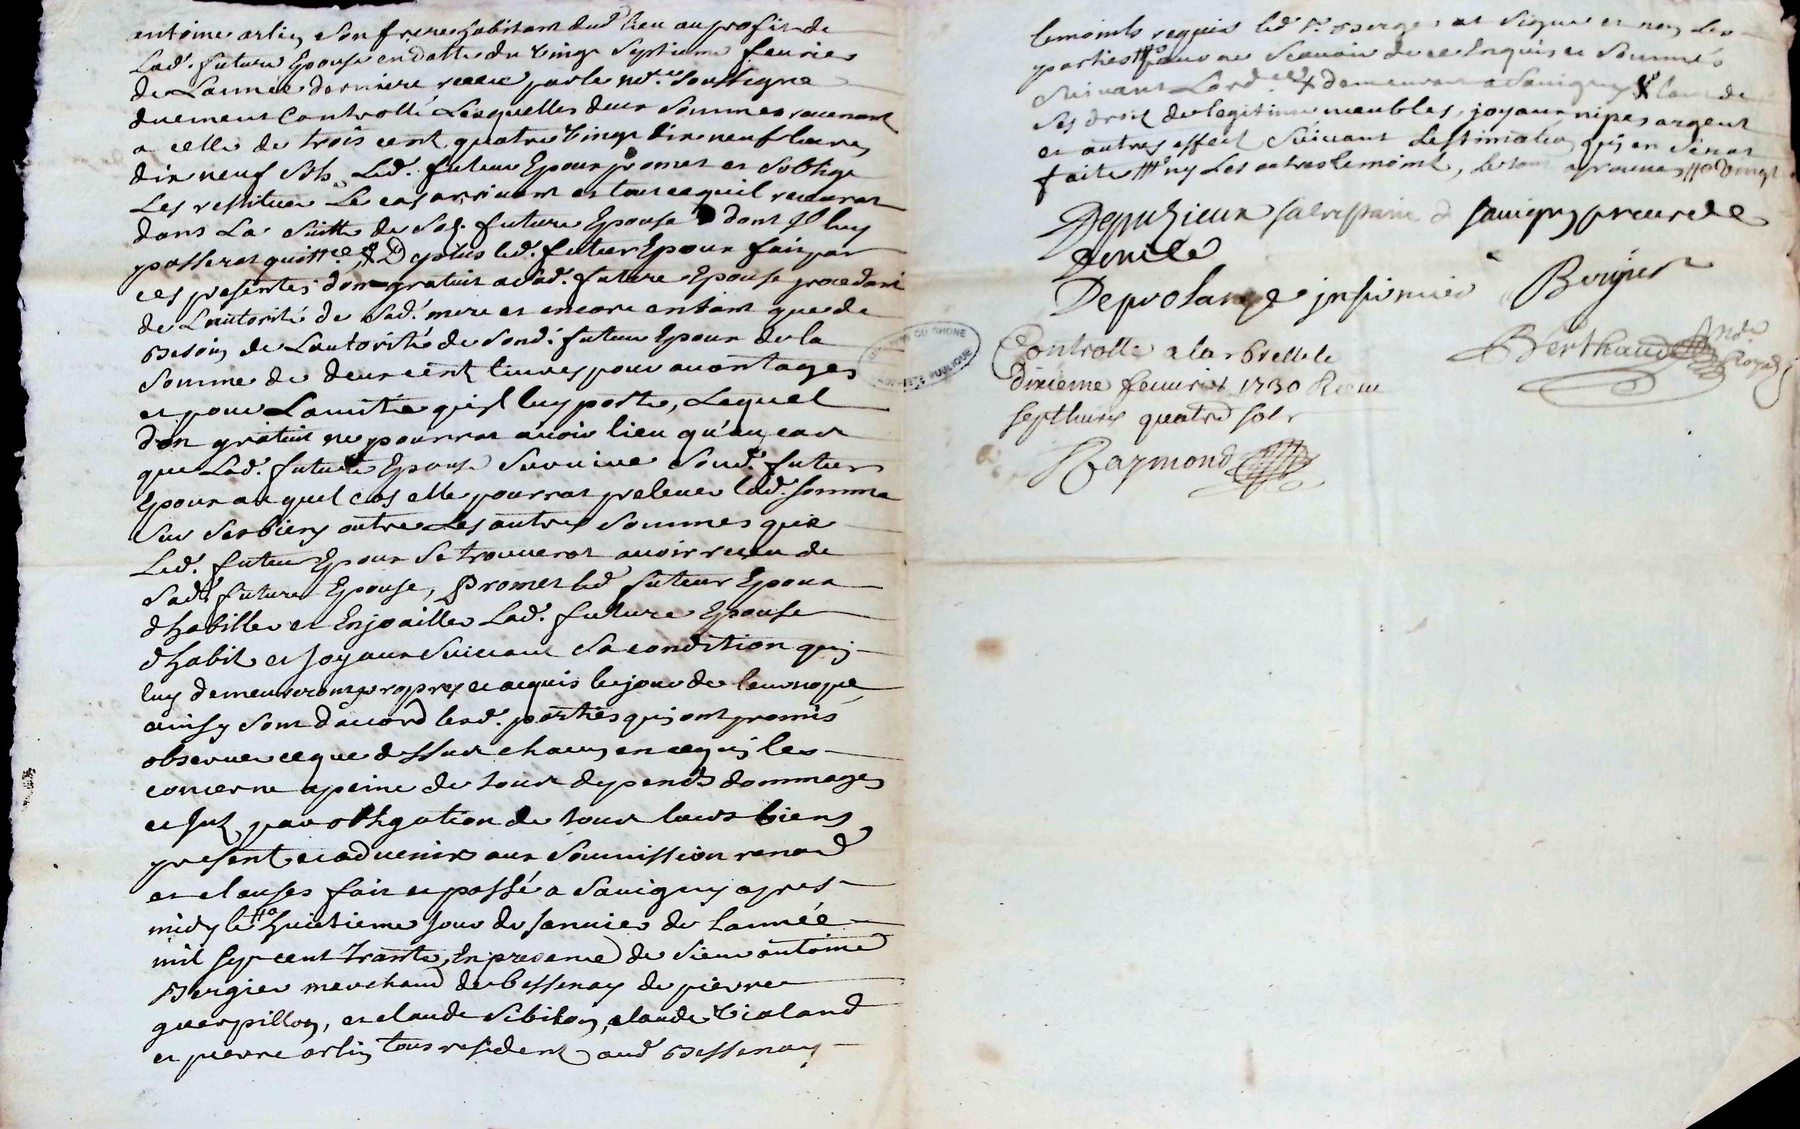 antoine arlin son frere habitant dud. lieu au profit de
Lad. future Epouse en datte du vingt septieme feurier
de Lannée derniere receu par le nore. soussigné
duement Controllé Lesquelles deux sommes reuenant
a celle de trois cent quatre vingt dix neuf liures
dix neuf sols Led. futeur Epoux promet et soblige
Les restituer Le cas arriuant et tout cequil receurat
dans La suitte de sad. future Epouse dont Il luy
passerat quittce. plus led. futeur Epoux fait par
ces presentes don gratuit a lad. future Epouse procedant
de Lautorité de sad. mere et encore entant que de
besoin de Lautorité de sond. futeur Epoux de la
somme de deux cent liures pour auantages
et pour Lamitié quil luy porte, Lequel
don gratuit ne pourrat auoir lieu qu'au cas
que Lad. future Epouse suruiue sond. futeur
Epoux au quel cas elle pourrat preleuer lad. somme
sur ses biens outre Les autres sommes que
Led. futeur Epoux se trouuerat auoir receu de
sad. future Epouse, Promet led futeur Epoux
dhabiller et Enjoailler Lad. future Epouse
dhabit et Joyaux suiuant sa condition quj
luy demeureront propres et acquis le jour de leur nopce
ainsy sont daccord lesd. parties quj ont promis
obseruer ceque dessus chacun en cequj les
concerne a peine de tous depends dommages
et Jnt par obligation de tous leurs biens
present et aduenir aux soumission renond
et clauses fait et passé a Sauigny apres
midy le huitieme jour de Januier de Lannée
mil sept cent trante, En presence de sieur antoine
Bergier marchand de bessenay de pierre
guerpillon, et claude sibilon, claude vialand
et pierre arlin tous resident aud Bessenay
temoints requis led. sr. Bergier at signé et non Les
parties pour ne scauoir de ce Enquis et sommés
suiuant Lordce. demeurant a Sauigny
ses droit de legitime meubles, joyaux nipes argent
et autres effect suiuant Lestimation quj en serat
faite ny Les autres temoint, le tout aprouué vingt
Depuzieux salrestaine d sauigny
Deprolange infirmier Bergier
Controllé a la brelle le Berthaud
dixieme feurier 1730 Receu
sept liures quatre sols
Raymond